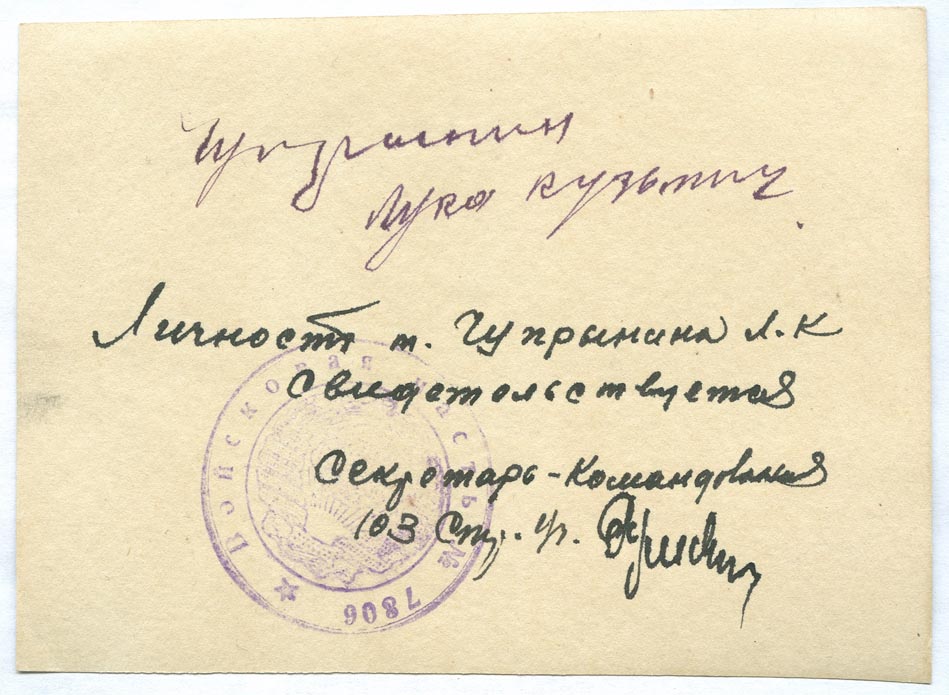 Чупрынин
Лука Кузьмич
Личность т. Чупрынина Л.К
свидетельствуется
Секретарь-Командования
103 Стр.
Войсковая часть № 7806